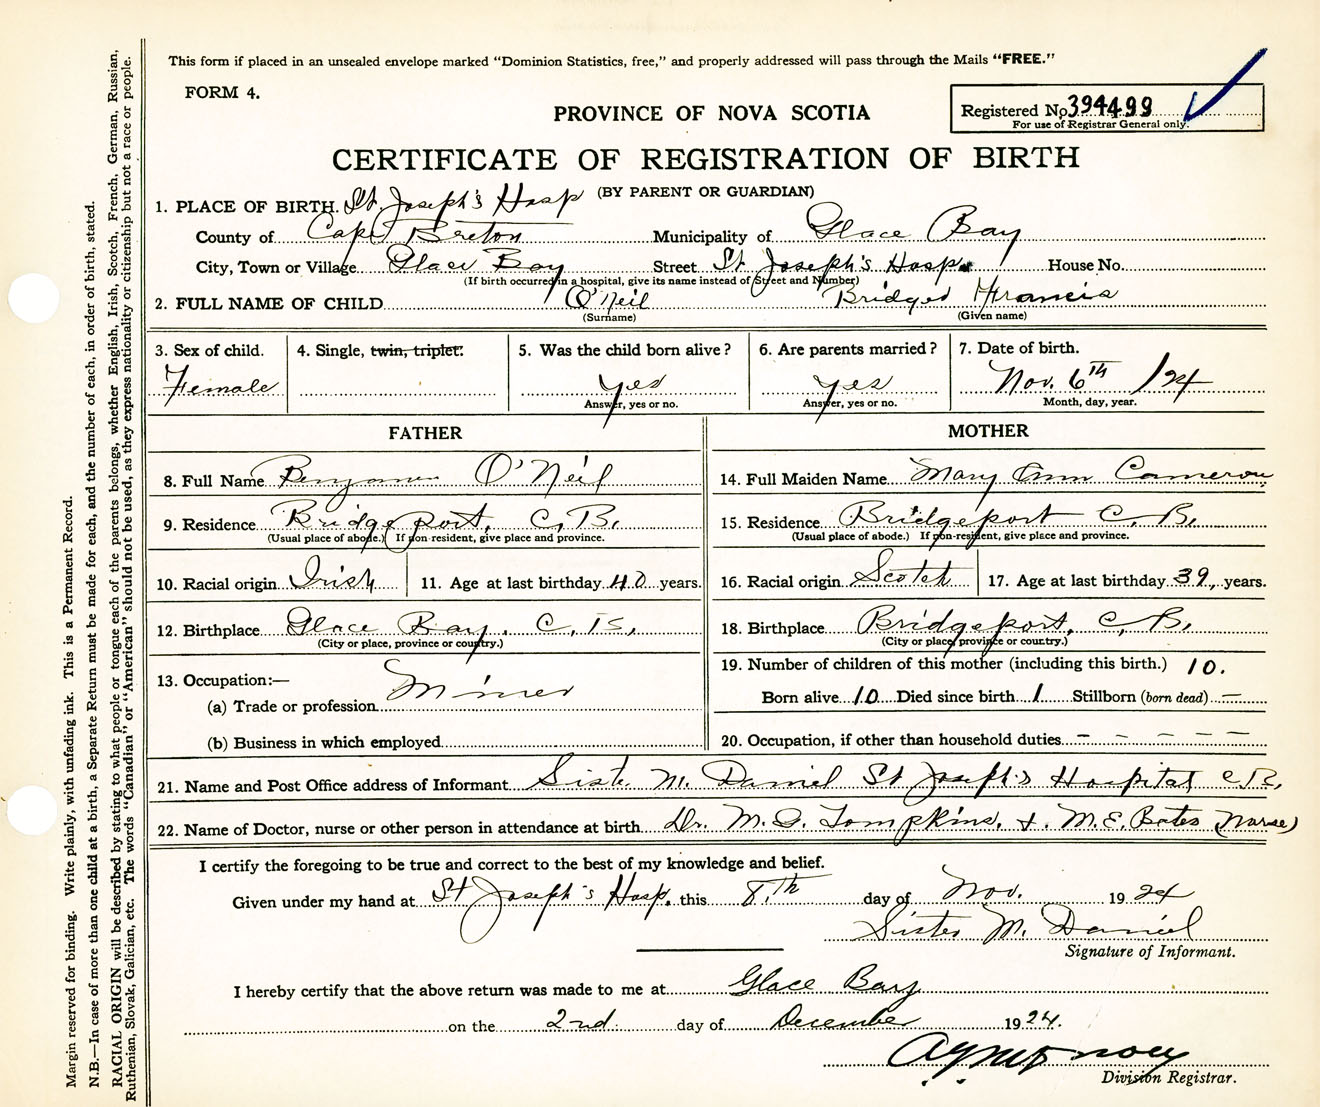 This form if placed in an unsealed envelope marked “Dominion Statistics, free,” and properly addressed will pass through the Mails “FREE.”
FORM 4.
PROVINCE OF NOVA SCOTIA
Registered No. 394499
For use of Registrar General only.
CERTIFICATE OF REGISTRATION OF BIRTH
(BY PARENT OR GUARDIAN)
1. PLACE OF BIRTH. St. Joseph's Hosp
County of Cape Breton Municipality of Glace Bay
City, Town or Village Glace Bay Street St Joseph's Hosp. House No.
(If birth occurred in a hospital, give its name instead of Street and Number)
2. FULL NAME OF CHILD O'Neil Bridged Francis
(Surname) (Given name)
3. Sex of child. 4. Single, twin, triplet. 5. Was the child born alive? 6. Are parents married? 7. Date of birth.
Female yes yes Nov. 6th /24
Answer, yes or no. Answer, yes or no. Month, day, year.
FATHER MOTHER
8. Full Name Benjamin O'Neil 14. Full Maiden Name Mary Ann Cameron
9. Residence Bridgeport, C.B. 15. Residence Bridgeport C.B.
(Usual place of abode.) (If non-resident, give place and province. (Usual place of abode.) If non-resident, give place and province.
10. Racial origin Irish 11. Age at last birthday 40 years. 16. Racial origin Scotch 17. Age at last birthday 39, years.
12. Birthplace Glace Bay, C.B. 18. Birthplace Bridgeport, C.B.
(City or place, province or country.) (City or place, province or country.)
13. Occupation:— 19. Number of children of this mother (including this birth.) 10.
(a) Trade or profession Miner Born alive 10 Died since birth 1 Stillborn (born dead) —
(b) Business in which employed 20. Occupation, if other than household duties - - - - -
21. Name and Post Office address of Informant Siste. M. Daniel St Joseph's Hospital C.B.
22. Name of Doctor, nurse or other person in attendance at birth Dr. M.G. Tompkins. &. M.E. Bates (Nurse)
I certify the foregoing to be true and correct to the best of my knowledge and belief.
Given under my hand at St Joseph's Hosp. this 8.th day of Nov. 1924
Sister M. Daniel
Signature of Informant.
I hereby certify that the above return was made to me at Glace Bay
on the 2nd. day of December 1924.
Division Registrar.
Margin reserved for binding. Write plainly, with unfading ink. This is a Permanent Record.
N.B.—In case of more than one child at a birth, a Separate Return must be made for each, and the number of each, in order of birth, stated.
RACIAL ORIGIN will be described by stating to what people or tongue each of the parents belongs, whether English, Irish, Scotch, French, German, Russian,
Ruthenian, Slovak, Galician, etc. The words “Canadian” or “American” should not be used, as they express nationality or citizenship but not a race or people.